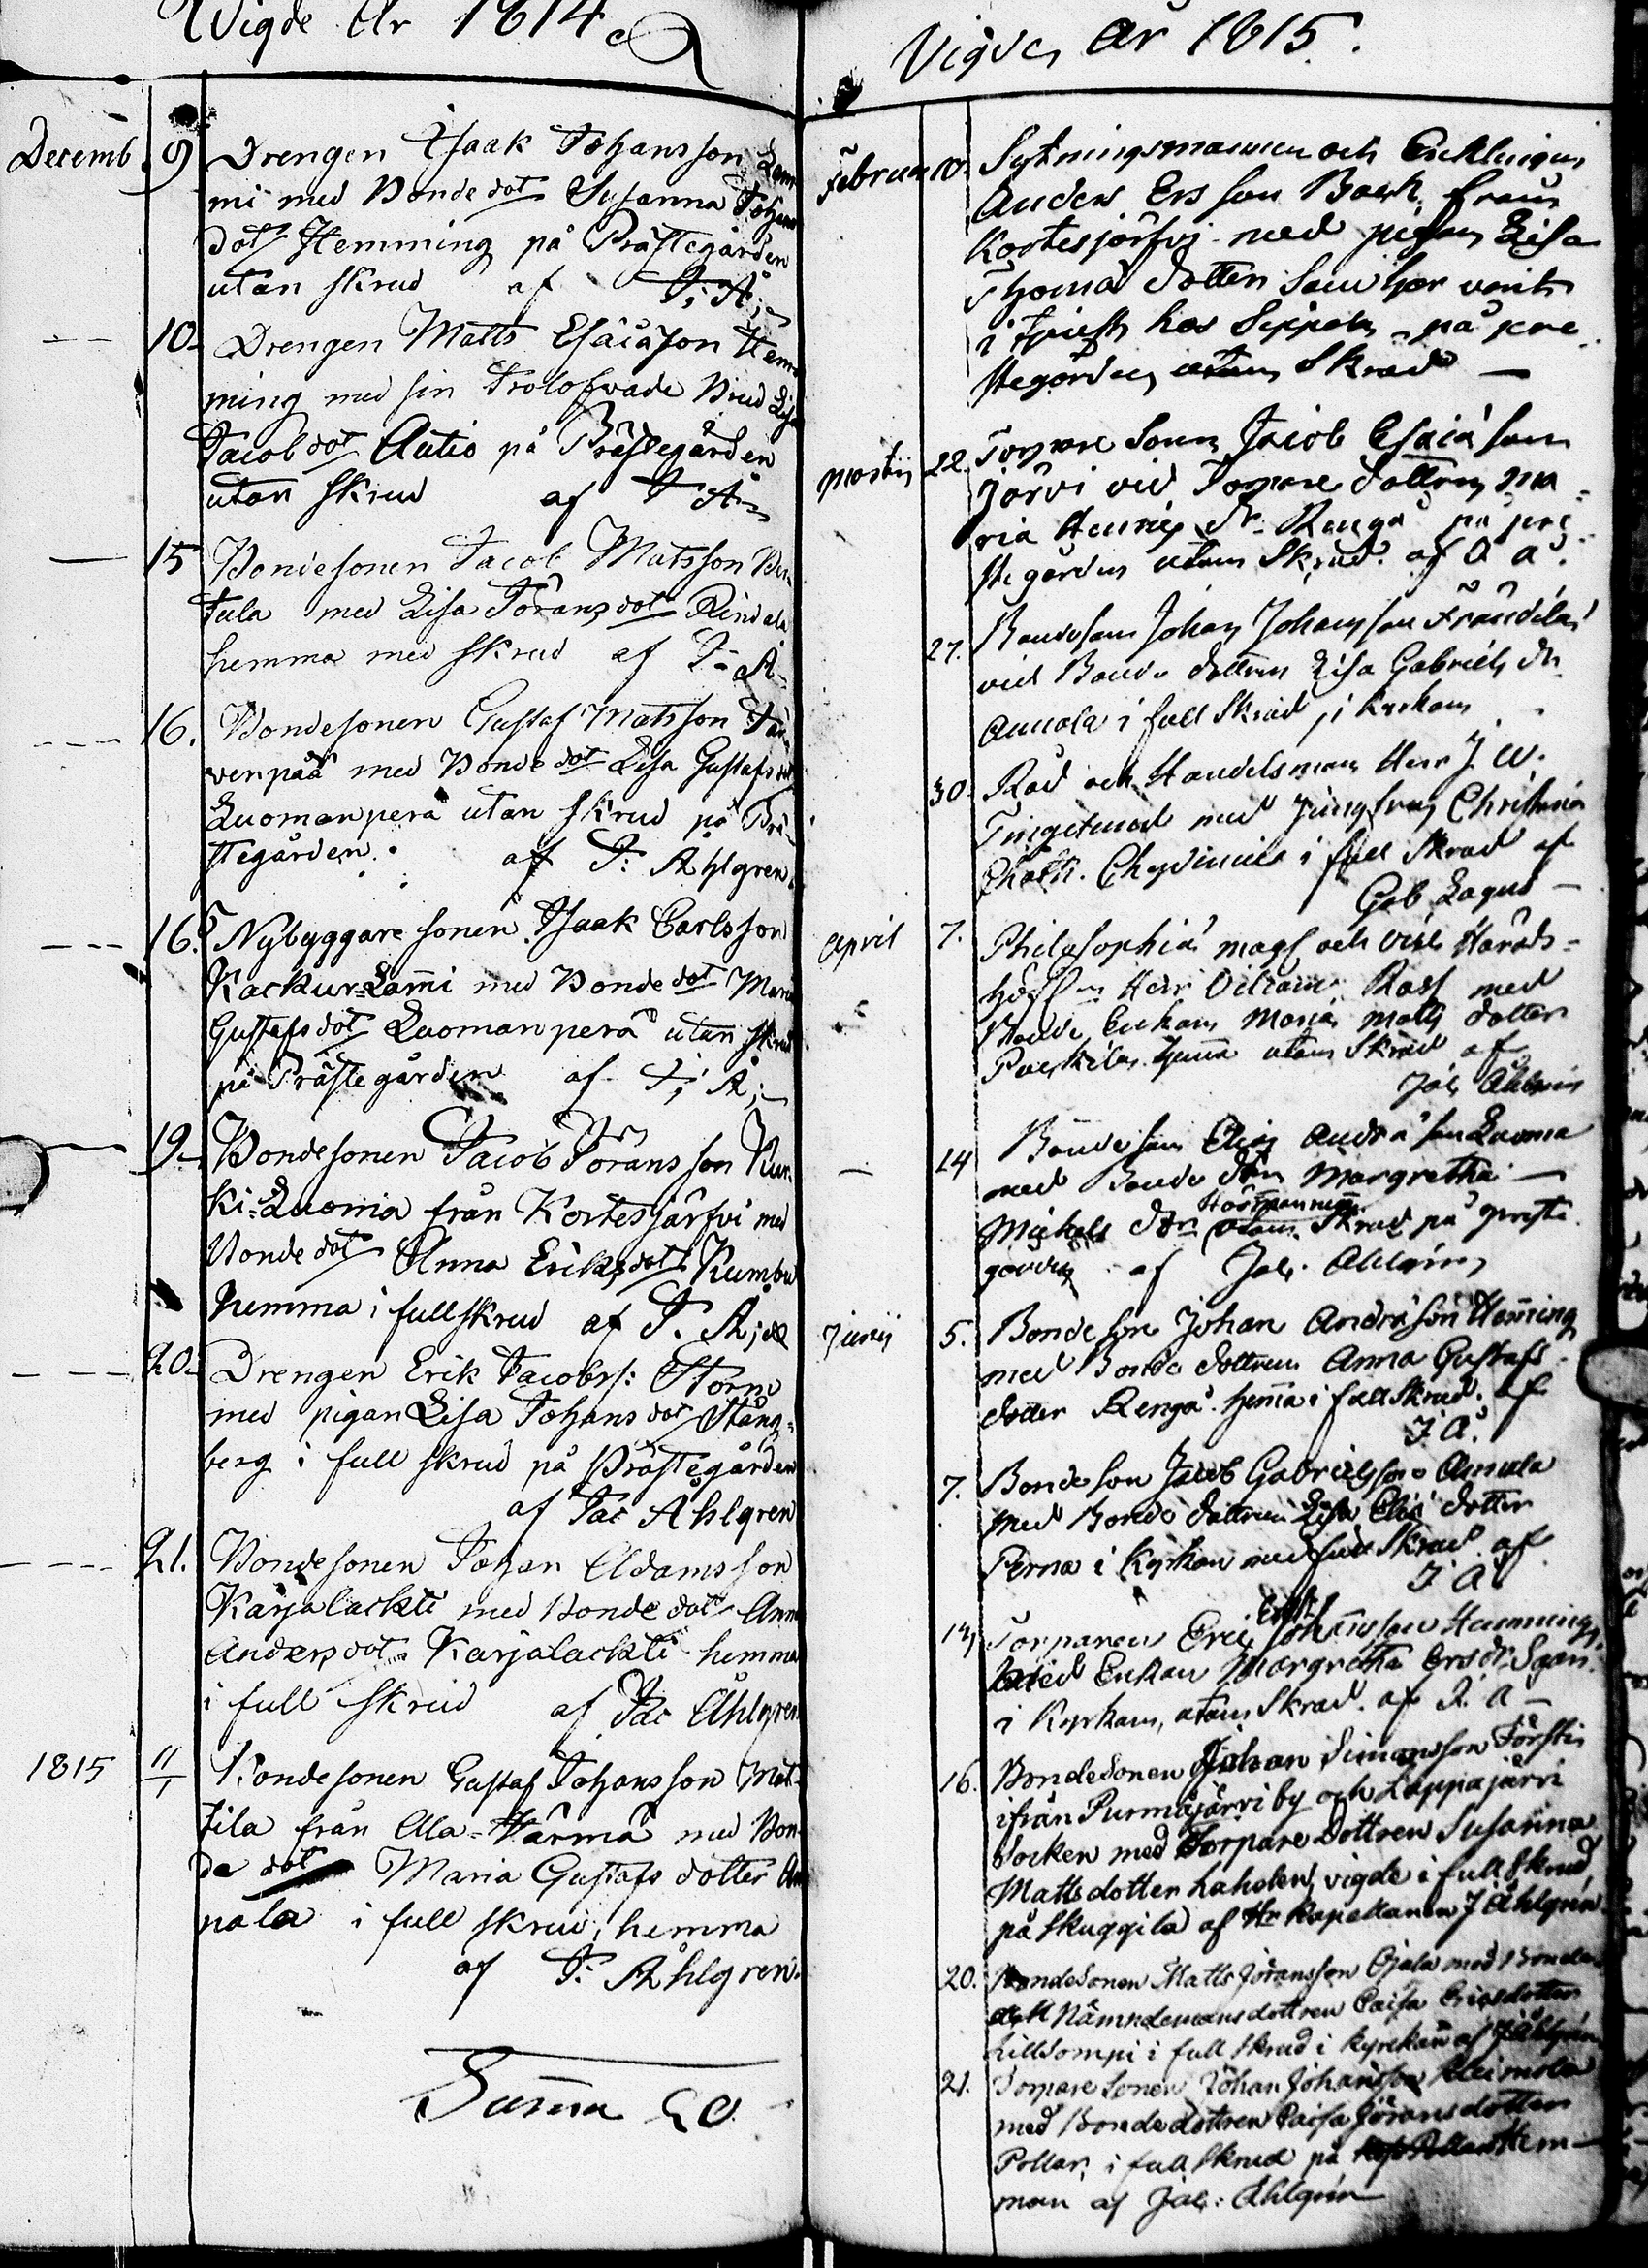 Vigde År 1814.
Decemb. 9 Drengen Isaak Johansson Lam
mi med Bonde dot Susanna Johans
dot Hemming på Prästegården
utan skrud af J: Å;
10. Drengen Matts Esaiason Hem
ming med sin Trolofvade Brud Lisa
Jacob dot Autio på Prästegården
utan skrud af J Å
15 Bondesonen Jacob Matsson
tula med Lisa Jörans dot Rindala
hemma med skrud af J: Å
16. Bondesonen Gustaf Matsson
venpää med Bonde dot Lisa Gustafs dot
Luomanperä utan skrud på Prä-
stegården. af J: Åhlgren
16. Nybyggare sonen Isaak Carlsson
Kackur-Lam̄i med Bonde dot Maria
Gustafs dot Luomanperä utan skrud
på Prästegården af J; Å;
19 Bondesonen Jacob Jörans son Kur
ki-Luoma från Kortesjärfvi med
Bonde dot Anna Eriks dot
hemma i full skrud af J. Å;
20. Drengen Erik Jacobss: Storm
med pigan Lisa Johans dot Stång-
berg i full skrud på Prästegården
af Jac Åhlgren
21. Bondesonen Johan Adamsson
Karjalackti med Bonde dot Anna
Anders dot Karjalackti hemma
i full skrud af Jac Åhlgren
1815 11/1 Bondesonen Gustaf Johansson Mat-
tila från Ala-Härmä med Bon-
de dot Maria Gustafs dotter An
nala i full skrud, hemma
af J: Åhlgren.
Sum̄a 20.
Vigde, år 1815.
Februari Sytningsmannen och Encklingen
Anders Ersson Back från
Kortesjärfvi med pigan Lisa
Thomas dotter som har varit
i tjenst hos på pre-
stegården utan Skrud
Martii 22. Torpare Sonen Jacob Esaiason
Järvi vid Torpare dottren Ma-
ria Henrics dr. Rengå på pre-
stegården utan Skrud af J Å.
27. Bondeson Johan Johansson Frändilä
vid Bonde dottren Lisa Gabriels dr
Annala i full Skrud i Kyrkan
30. Råd och Handelsman Herr J. W.
med Jungfrun Christina
Cath. Chydenius i full Skrud af
Gab Lagus
April 7. Philosophiæ mag och vice Härads-
höfd Herr med
Enkan Maria Matts dotter
hemma utan Skrud af
Jac Åhlgren
14 Bondeson Elias Andrä son Luoma
med Bonde dn Margretha
Mickels dtr utan Skrud på preste
gården af Jac. Åhlgren
Junii 5. Bondeson Johan Andräson Hem̄ing
med Bonde dottren Anna Gustafs
dotter Rengå hem̄a i full Skrud af
J Å.
7. Bondeson Jacob Gabrielsson Annala
med Bonde dottren Lisa Elias dotter
Perna i Kyrkan med full Skrud af
J Å
14 Torparen Eric Johansson Hemming
med Enkan Margretha Ersdr
i Kyrkan, utan Skrud af J. Å
16. Bondesonen Johan Simonsson Försti
ifrån Purmojärvi by och Lappajärvi
Socken med Torpare Dottren Susanna
Mattsdotter vigde i full Skrud
på Skuggila af Hr Kapellanen J Åhlgren
20. Bondesonen Matts Jöransson Ojala med Bonde
och Nämndemansdottren Caisa Ericsdotter
Lillsompi i full Skrud i kyrckan af J Åhlgren
21. Torpare Sonen Johan Johansson
med Bondedottren Caisa Jöransdotter
Pollar i full Skrud på Hem-
man af Jac: Åhlgren